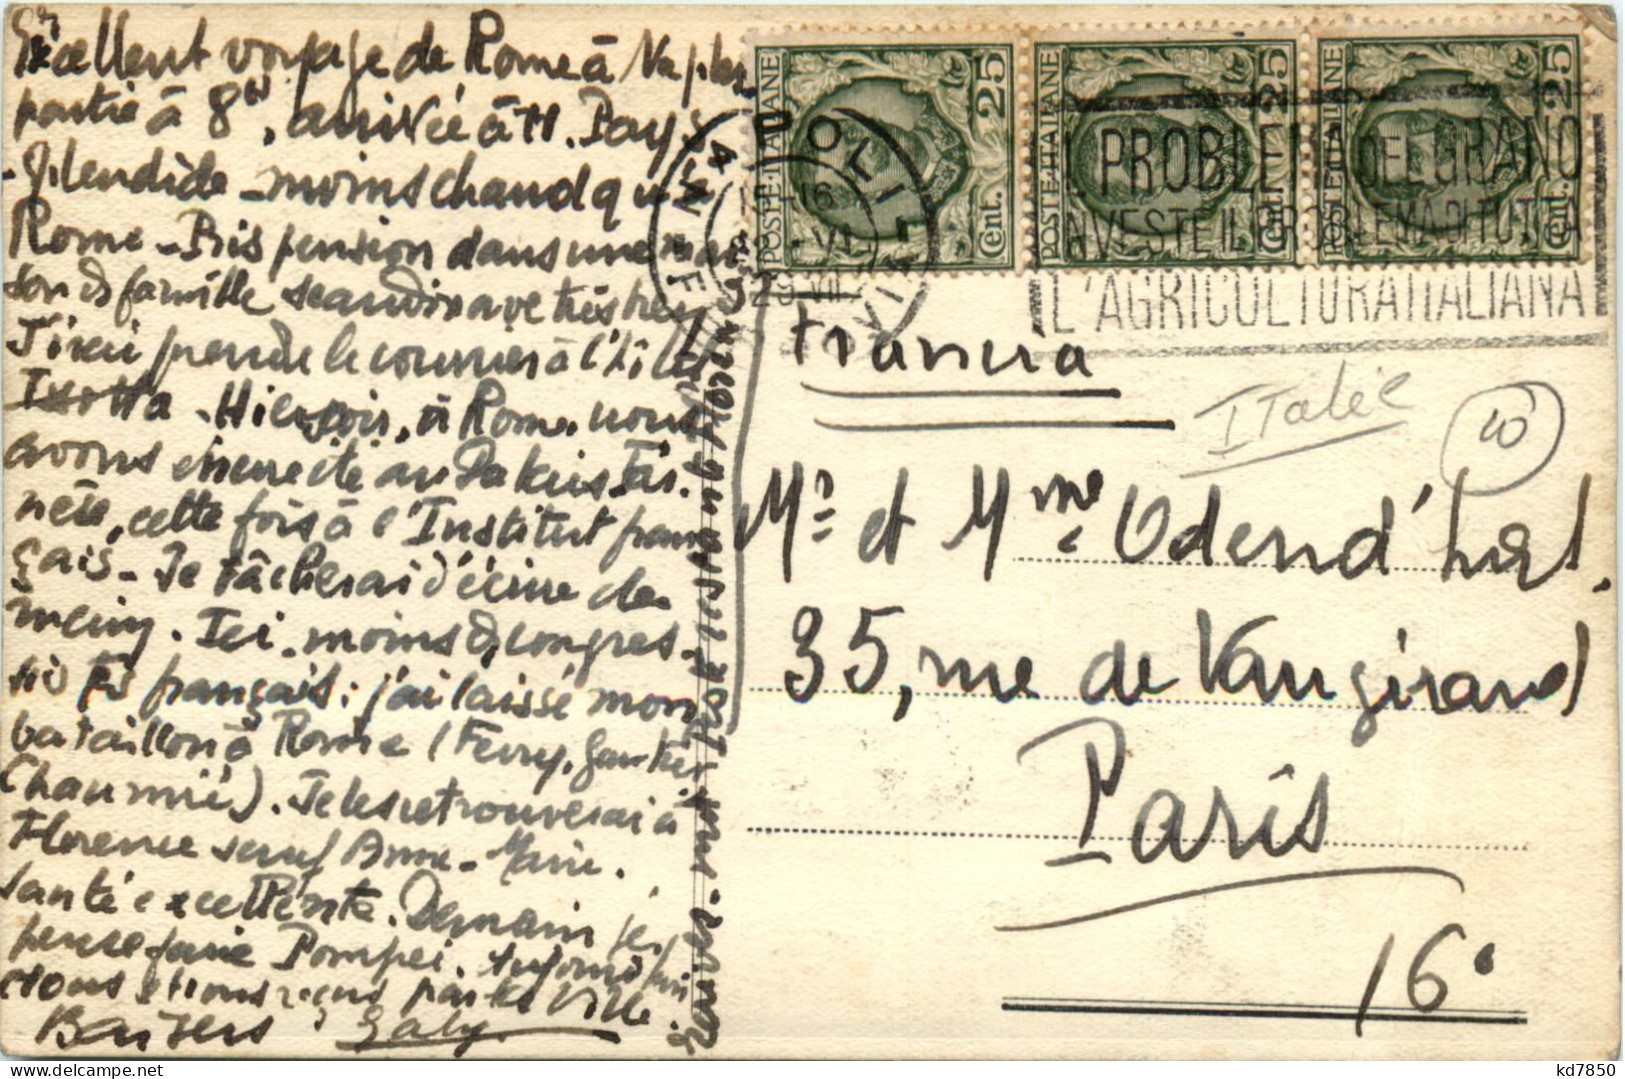 Excellent voyage de Rome à Naples.
partie à 8h, arrivée à 11. Pays
splendide - moins chaud qu'à
Rome - Pris pension dans une mai
son de famille scandinave très
J'irai prendre le courrier à l'
Hier soir, à Rome, nous
avons encore été au
cette fois à l'Institut fran
çais - Je tâcherai d'écrire de-
main. Ici - moins de congres-
français: j'ai laissé mon
bataillon à Rome (Ferry, Gautier
Chaumié). Je les retrouverai à
Florence sauf Anne-Marie.
Santé excellente. Demain je
pense faire Pompei. Aujourd'hui
nous étions reçus par la Ville.
Baisers Galy
POSTE ITALIANE Cent. 25
POSTE ITALIANE Cent. 25
POSTE ITALIANE Cent. 25
NAPOLI
FERROVIA
IL PROBLEMA DEL GRANO
INVESTE IL PROBLEMA DI TUTTA
L'AGRICOLTURA ITALIANA
Francia
Italie
10
Mr et Mme Odend'hal.
35, rue de Vaugirard
Paris
16e
kd7850